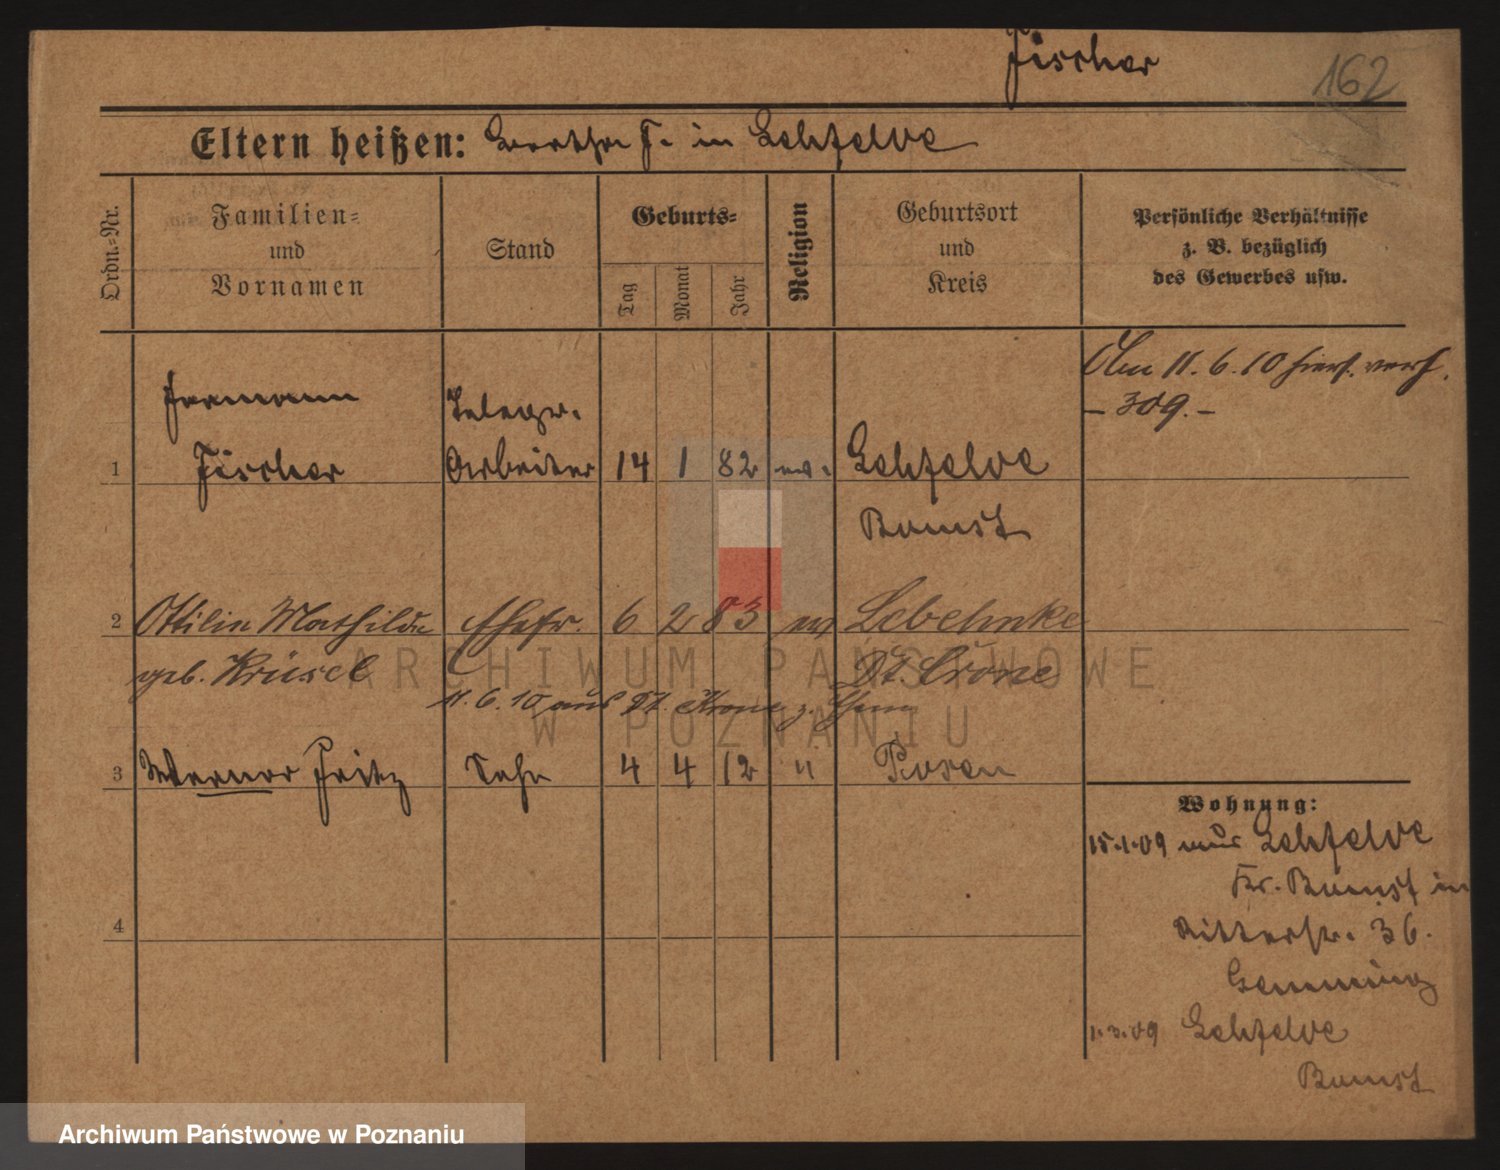 Fischer
162
Eltern heißen: F. in Lehfelde
Ordn.-Nr.
Familien-
und
Vornamen
Stand
Geburts-
Tag
Monat
Jahr
Religion
Geburtsort
und
Kreis
Persönliche Verhältnisse
z. B. bezüglich
des Gewerbes usw.
Am 11.6.10 hier verh.
- 309. -
Hermann Telegr.
1 Fischer Arbeiter 14 1 82 ev. Lehfelde
Bomst
2 Ottilie Mathilde Ehefr. 6 2 83 ev Lebehnke
geb. Krüsel Dt. Crone
11.6.10 aus Dt. Krone z. Ehem
3 Werner Fritz Sohn 4 4 12 " Posen
Wohnung:
15.1.09 aus Lehfelde
Kr. Bomst in
Ritterstr. 36.
4
1.3.09 Lehfelde
Bomst
ARCHIWUM PAŃSTWOWE
W POZNANIU
Archiwum Państwowe w Poznaniu